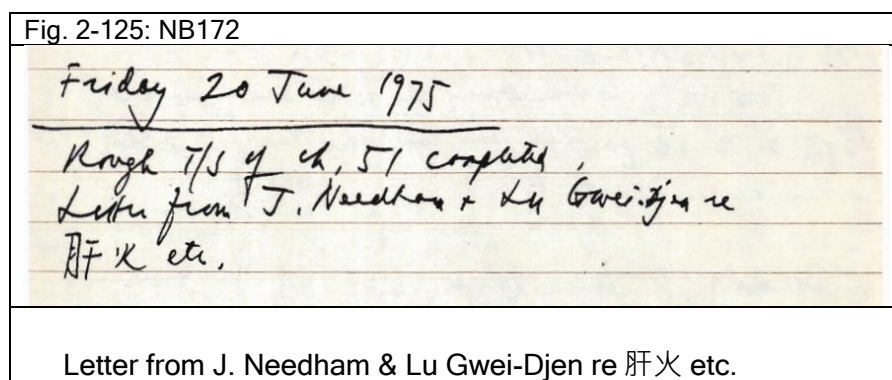 Fig. 2-125: NB172
Friday 20 June 1975
Rough T/S of ch. 51 completed.
Letter from J. Needham + Lu Gwei-djen re
肝火 etc.
Letter from J. Needham & Lu Gwei-Djen re 肝火 etc.